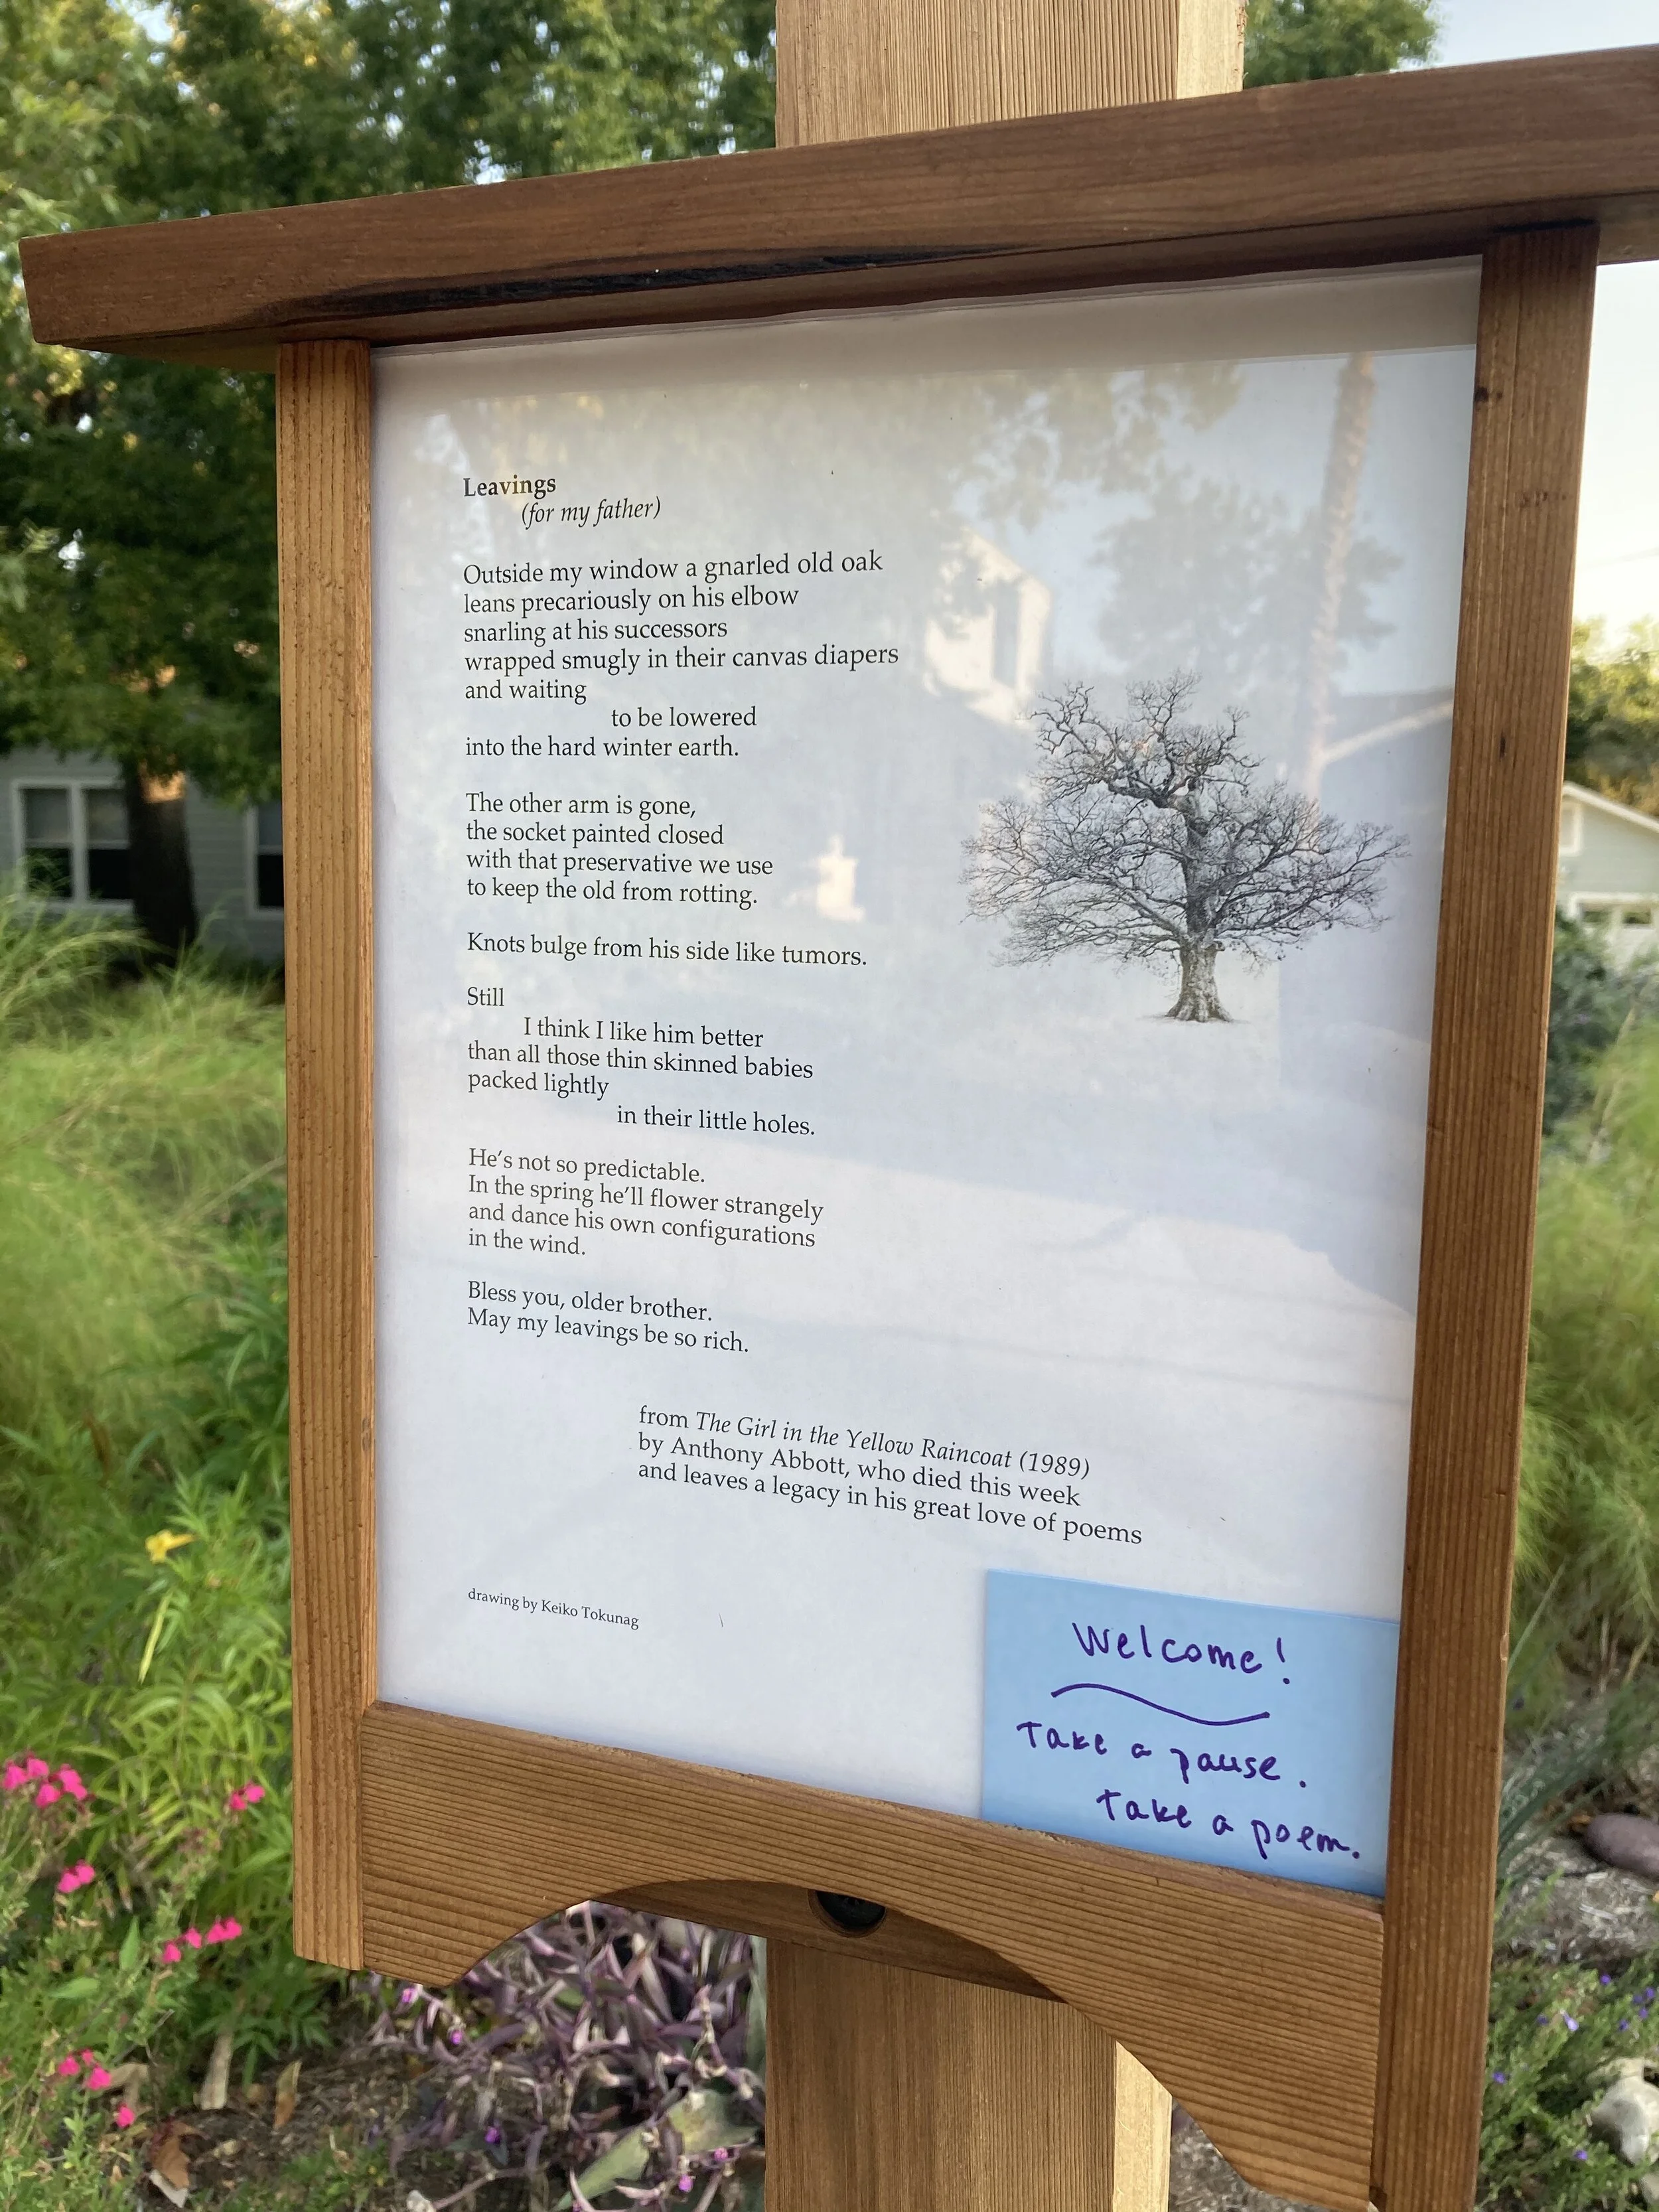 Leavings
(for my father)
Outside my window a gnarled old oak
leans precariously on his elbow
snarling at his successors
wrapped smugly in their canvas diapers
and waiting
to be lowered
into the hard winter earth.
The other arm is gone,
the socket painted closed
with that preservative we use
to keep the old from rotting.
Knots bulge from his side like tumors.
Still
I think I like him better
than all those thin skinned babies
packed lightly
in their little holes.
He's not so predictable.
In the spring he'll flower strangely
and dance his own configurations
in the wind.
Bless you, older brother.
May my leavings be so rich.
from The Girl in the Yellow Raincoat (1989)
by Anthony Abbott, who died this week
and leaves a legacy in his great love of poems
drawing by Keiko Tokunag
Welcome!
Take a pause.
Take a poem.